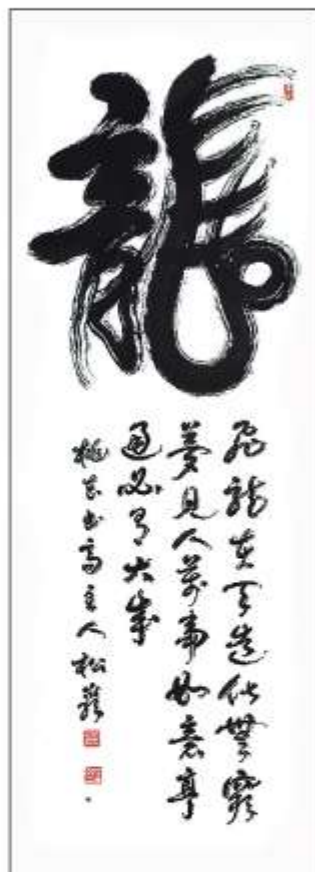 龍
飛龍在天造化無窮
夢見人萬事如意亨
通必有大成
桃谷書高主人松巖